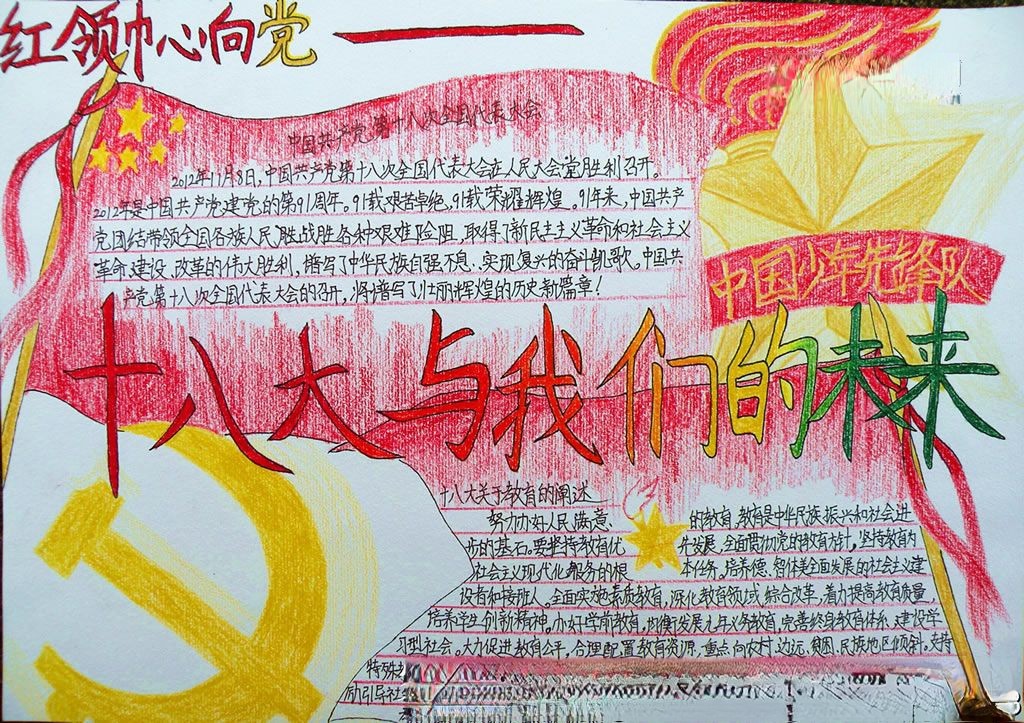 红领巾心向党
中国共产党第十八次全国代表大会
2012年11月8日,中国共产党第十八次全国代表大会在人民大会堂胜利召开。
2012年是中国共产党建党的第91周年。91载艰苦卓绝,91载荣耀辉煌。91年来,中国共产
党团结带领全国各族人民,战胜各种艰难险阻,取得了新民主主义革命和社会主义
革命、建设、改革的伟大胜利,谱写了中华民族自强不息、实现复兴的奋斗凯歌。中国共
产党第十八次全国代表大会的召开,将谱写了壮丽辉煌的历史新篇章!
中国少年先锋队
十八大与我们的未来
十八大关于教育的阐述
努力办好人民满意的教育,教育是中华民族振兴和社会进
步的基石。要坚持教育优先发展,全面贯彻党的教育方针,坚持教育为
社会主义现代化服务的根本任务。培养德、智体美全面发展的社会主义建
设者和接班人。全面实施素质教育,深化教育领域综合改革,着力提高教育质量,
培养学生创新精神。办好学前教育,均衡发展九年义务教育,完善终身教育体系,建设学
习型社会。大力促进教育公平,合理配置教育资源,重点向农村、边远、贫困、民族地区倾斜,支持
特殊
励引导社